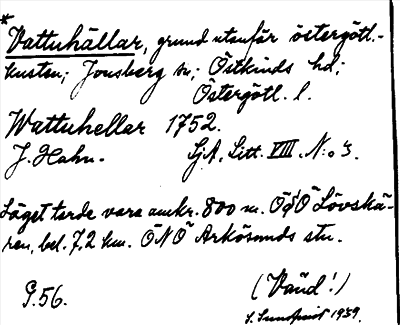 *
Vattuhällar, grund utanför östergötl.-
kusten; Jonsberg sn; Östkinds hd;
Östergötl. l.
Wattuhellar 1752.
J. Hahn. SjA, Litt. VIII. N:o 3.
Läget torde vara omkr. 800 m. Ö Lövskä-
ren, bel. 7,2 km. ÖNÖ Arkösunds stn.
(Vänd!)
S.56.
1939.